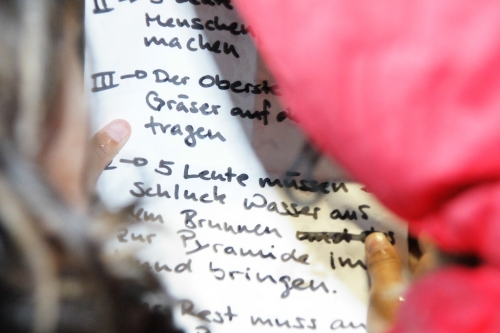 II → 5 Leute
Menschen
machen
III → Der Oberste
Gräser auf
tragen
→ 5 Leute müssen
Schluck Wasser aus
dem Brunnen
zur Pyramide im
Mund bringen.
Rest muss an